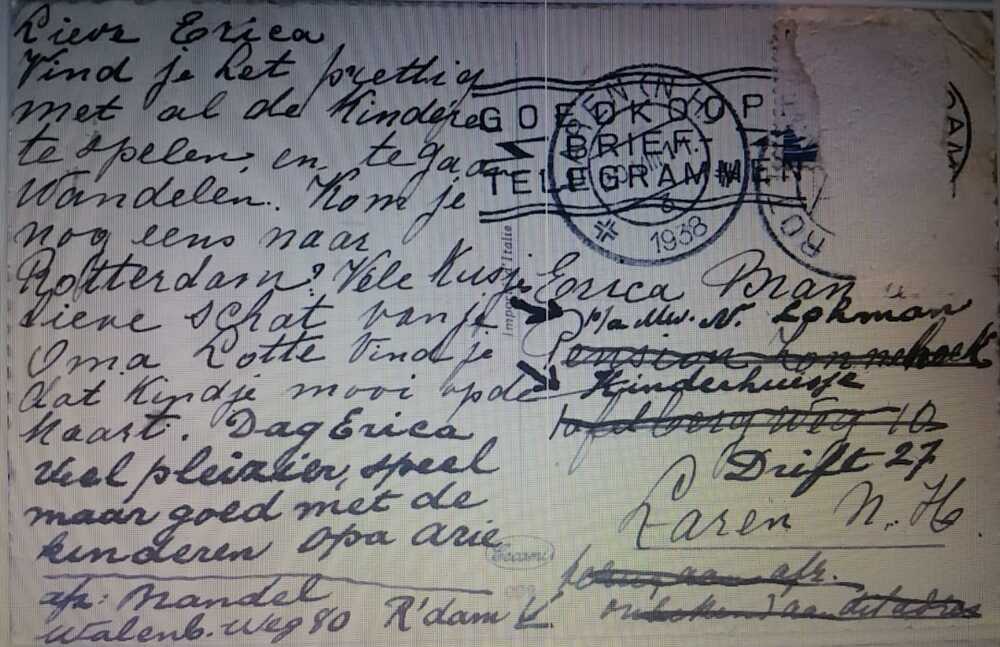 Lieve Erica
Vind je het prettig
met al de Kindere
te spelen en te gaan
Wandelen. Kom je
nog eens naar
Rotterdam? Vele Kusje
Lieve schat van je
Oma Lotte Vind je
dat Kindje mooi op de
Kaart. Dag Erica
Veel pleizier, speel
maar goed met de
kinderen opa Arie
afz: Mandel
Walenb. Weg 80 R'dam
GOEDKOOP
BRIEF-
TELEGRAMMEN
1938
RO
DAM
Import d'Italie
Erica Bran
p/a Mw. N. Lohman
Pension Zonnehoek
Kinderhuisje
Tafelbergweg 10
Drift 27
Laren N. H
terug aan afz.
onbekend aan dit adres
Cecami